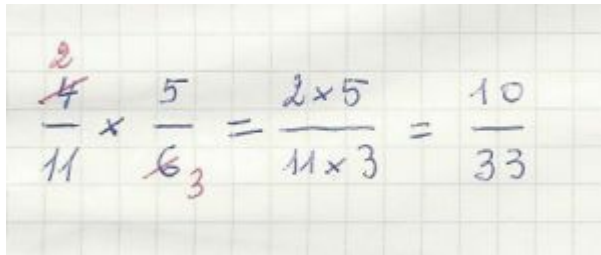 2
4/11 × 5/6 = 2×5/11×3 = 10/33
3